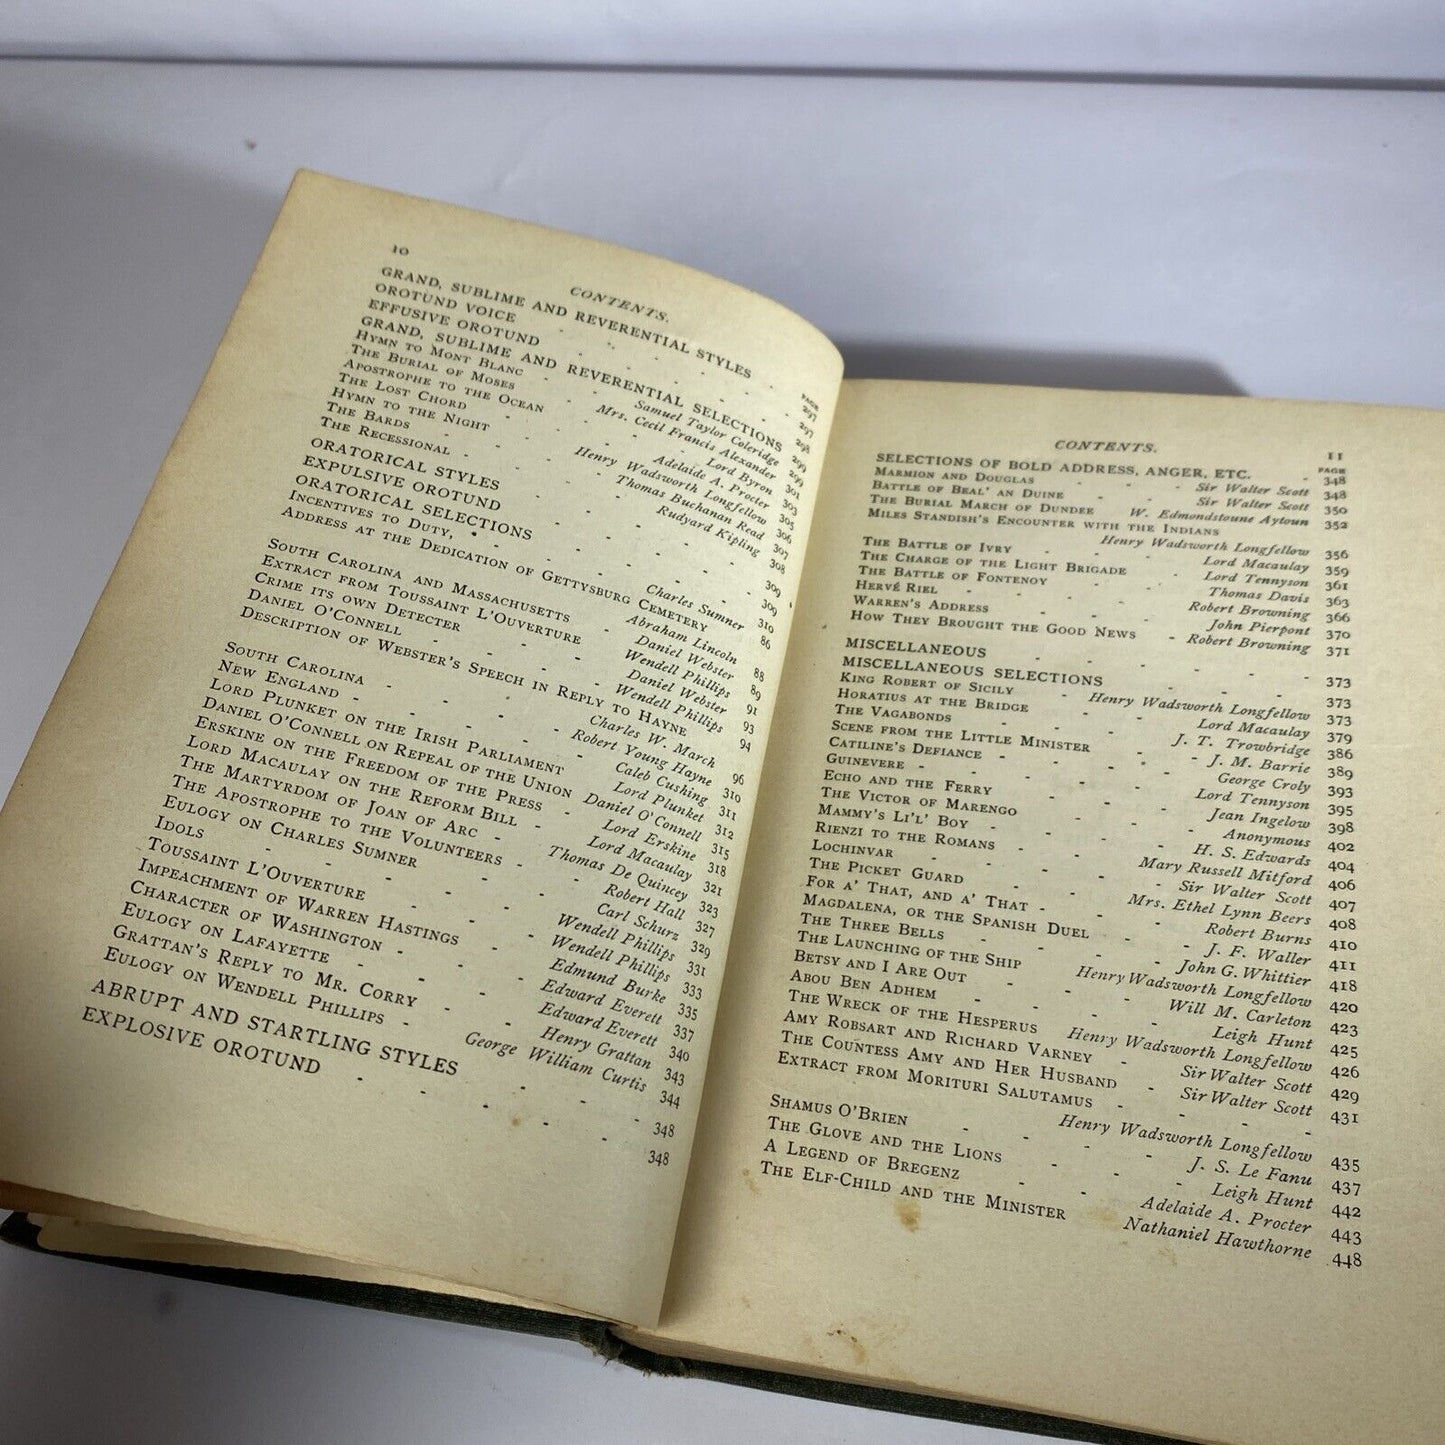 10
CONTENTS.
PAGE
GRAND, SUBLIME AND REVERENTIAL STYLES - 297
OROTUND VOICE - 297
EFFUSIVE OROTUND - 298
GRAND, SUBLIME AND REVERENTIAL SELECTIONS 299
HYMN TO MONT BLANC - Samuel Taylor Coleridge 299
THE BURIAL OF MOSES - Mrs. Cecil Francis Alexander 301
APOSTROPHE TO THE OCEAN - Lord Byron 303
THE LOST CHORD - Adelaide A. Procter 305
HYMN TO THE NIGHT - Henry Wadsworth Longfellow 306
THE BARDS - Thomas Buchanan Read 307
THE RECESSIONAL - Rudyard Kipling 308
ORATORICAL STYLES - 309
EXPULSIVE OROTUND - 309
ORATORICAL SELECTIONS - 310
INCENTIVES TO DUTY, - Charles Sumner 86
ADDRESS AT THE DEDICATION OF GETTYSBURG CEMETERY
Abraham Lincoln 88
SOUTH CAROLINA AND MASSACHUSETTS - Daniel Webster 89
EXTRACT FROM TOUSSAINT L'OUVERTURE - Wendell Phillips 91
CRIME ITS OWN DETECTER - Daniel Webster 93
DANIEL O'CONNELL - Wendell Phillips 94
DESCRIPTION OF WEBSTER'S SPEECH IN REPLY TO HAYNE
Charles W. March 96
SOUTH CAROLINA - Robert Young Hayne 310
NEW ENGLAND - Caleb Cushing 311
LORD PLUNKET ON THE IRISH PARLIAMENT - Lord Plunket 312
DANIEL O'CONNELL ON REPEAL OF THE UNION Daniel O'Connell 315
ERSKINE ON THE FREEDOM OF THE PRESS - Lord Erskine 318
LORD MACAULAY ON THE REFORM BILL - Lord Macaulay 321
THE MARTYRDOM OF JOAN OF ARC - Thomas De Quincey 323
THE APOSTROPHE TO THE VOLUNTEERS - Robert Hall 327
EULOGY ON CHARLES SUMNER - Carl Schurz 329
IDOLS - Wendell Phillips 331
TOUSSAINT L'OUVERTURE - Wendell Phillips 333
IMPEACHMENT OF WARREN HASTINGS - Edmund Burke 335
CHARACTER OF WASHINGTON - Edward Everett 337
EULOGY ON LAFAYETTE - Edward Everett 340
GRATTAN'S REPLY TO MR. CORRY - Henry Grattan 343
EULOGY ON WENDELL PHILLIPS - George William Curtis 344
ABRUPT AND STARTLING STYLES - 348
EXPLOSIVE OROTUND - 348
CONTENTS.
11
PAGE
SELECTIONS OF BOLD ADDRESS, ANGER, ETC. - 348
MARMION AND DOUGLAS - Sir Walter Scott 348
BATTLE OF BEAL' AN DUINE - Sir Walter Scott 350
THE BURIAL MARCH OF DUNDEE - W. Edmondstoune Aytoun 352
MILES STANDISH'S ENCOUNTER WITH THE INDIANS
Henry Wadsworth Longfellow 356
THE BATTLE OF IVRY - Lord Macaulay 359
THE CHARGE OF THE LIGHT BRIGADE - Lord Tennyson 361
THE BATTLE OF FONTENOY - Thomas Davis 363
HERVÉ RIEL - Robert Browning 366
WARREN'S ADDRESS - John Pierpont 370
HOW THEY BROUGHT THE GOOD NEWS - Robert Browning 371
MISCELLANEOUS - 373
MISCELLANEOUS SELECTIONS -
KING ROBERT OF SICILY - Henry Wadsworth Longfellow 373
HORATIUS AT THE BRIDGE - Lord Macaulay 379
THE VAGABONDS - J. T. Trowbridge 386
SCENE FROM THE LITTLE MINISTER - J. M. Barrie 389
CATILINE'S DEFIANCE - George Croly 393
GUINEVERE - Lord Tennyson 395
ECHO AND THE FERRY - Jean Ingelow 398
THE VICTOR OF MARENGO - Anonymous 402
MAMMY'S LI'L' BOY - H. S. Edwards 404
RIENZI TO THE ROMANS - Mary Russell Mitford 406
LOCHINVAR - Sir Walter Scott 407
THE PICKET GUARD - Mrs. Ethel Lynn Beers 408
FOR A' THAT, AND A' THAT - Robert Burns 410
MAGDALENA, OR THE SPANISH DUEL - J. F. Waller 411
THE THREE BELLS - John G. Whittier 418
THE LAUNCHING OF THE SHIP Henry Wadsworth Longfellow 420
BETSY AND I ARE OUT - Will M. Carleton 423
ABOU BEN ADHEM - Leigh Hunt 425
THE WRECK OF THE HESPERUS Henry Wadsworth Longfellow 426
AMY ROBSART AND RICHARD VARNEY - Sir Walter Scott 429
THE COUNTESS AMY AND HER HUSBAND - Sir Walter Scott 431
EXTRACT FROM MORITURI SALUTAMUS -
Henry Wadsworth Longfellow 435
SHAMUS O'BRIEN - J. S. Le Fanu 437
THE GLOVE AND THE LIONS - Leigh Hunt 442
A LEGEND OF BREGENZ - Adelaide A. Procter 443
THE ELF-CHILD AND THE MINISTER Nathaniel Hawthorne 448